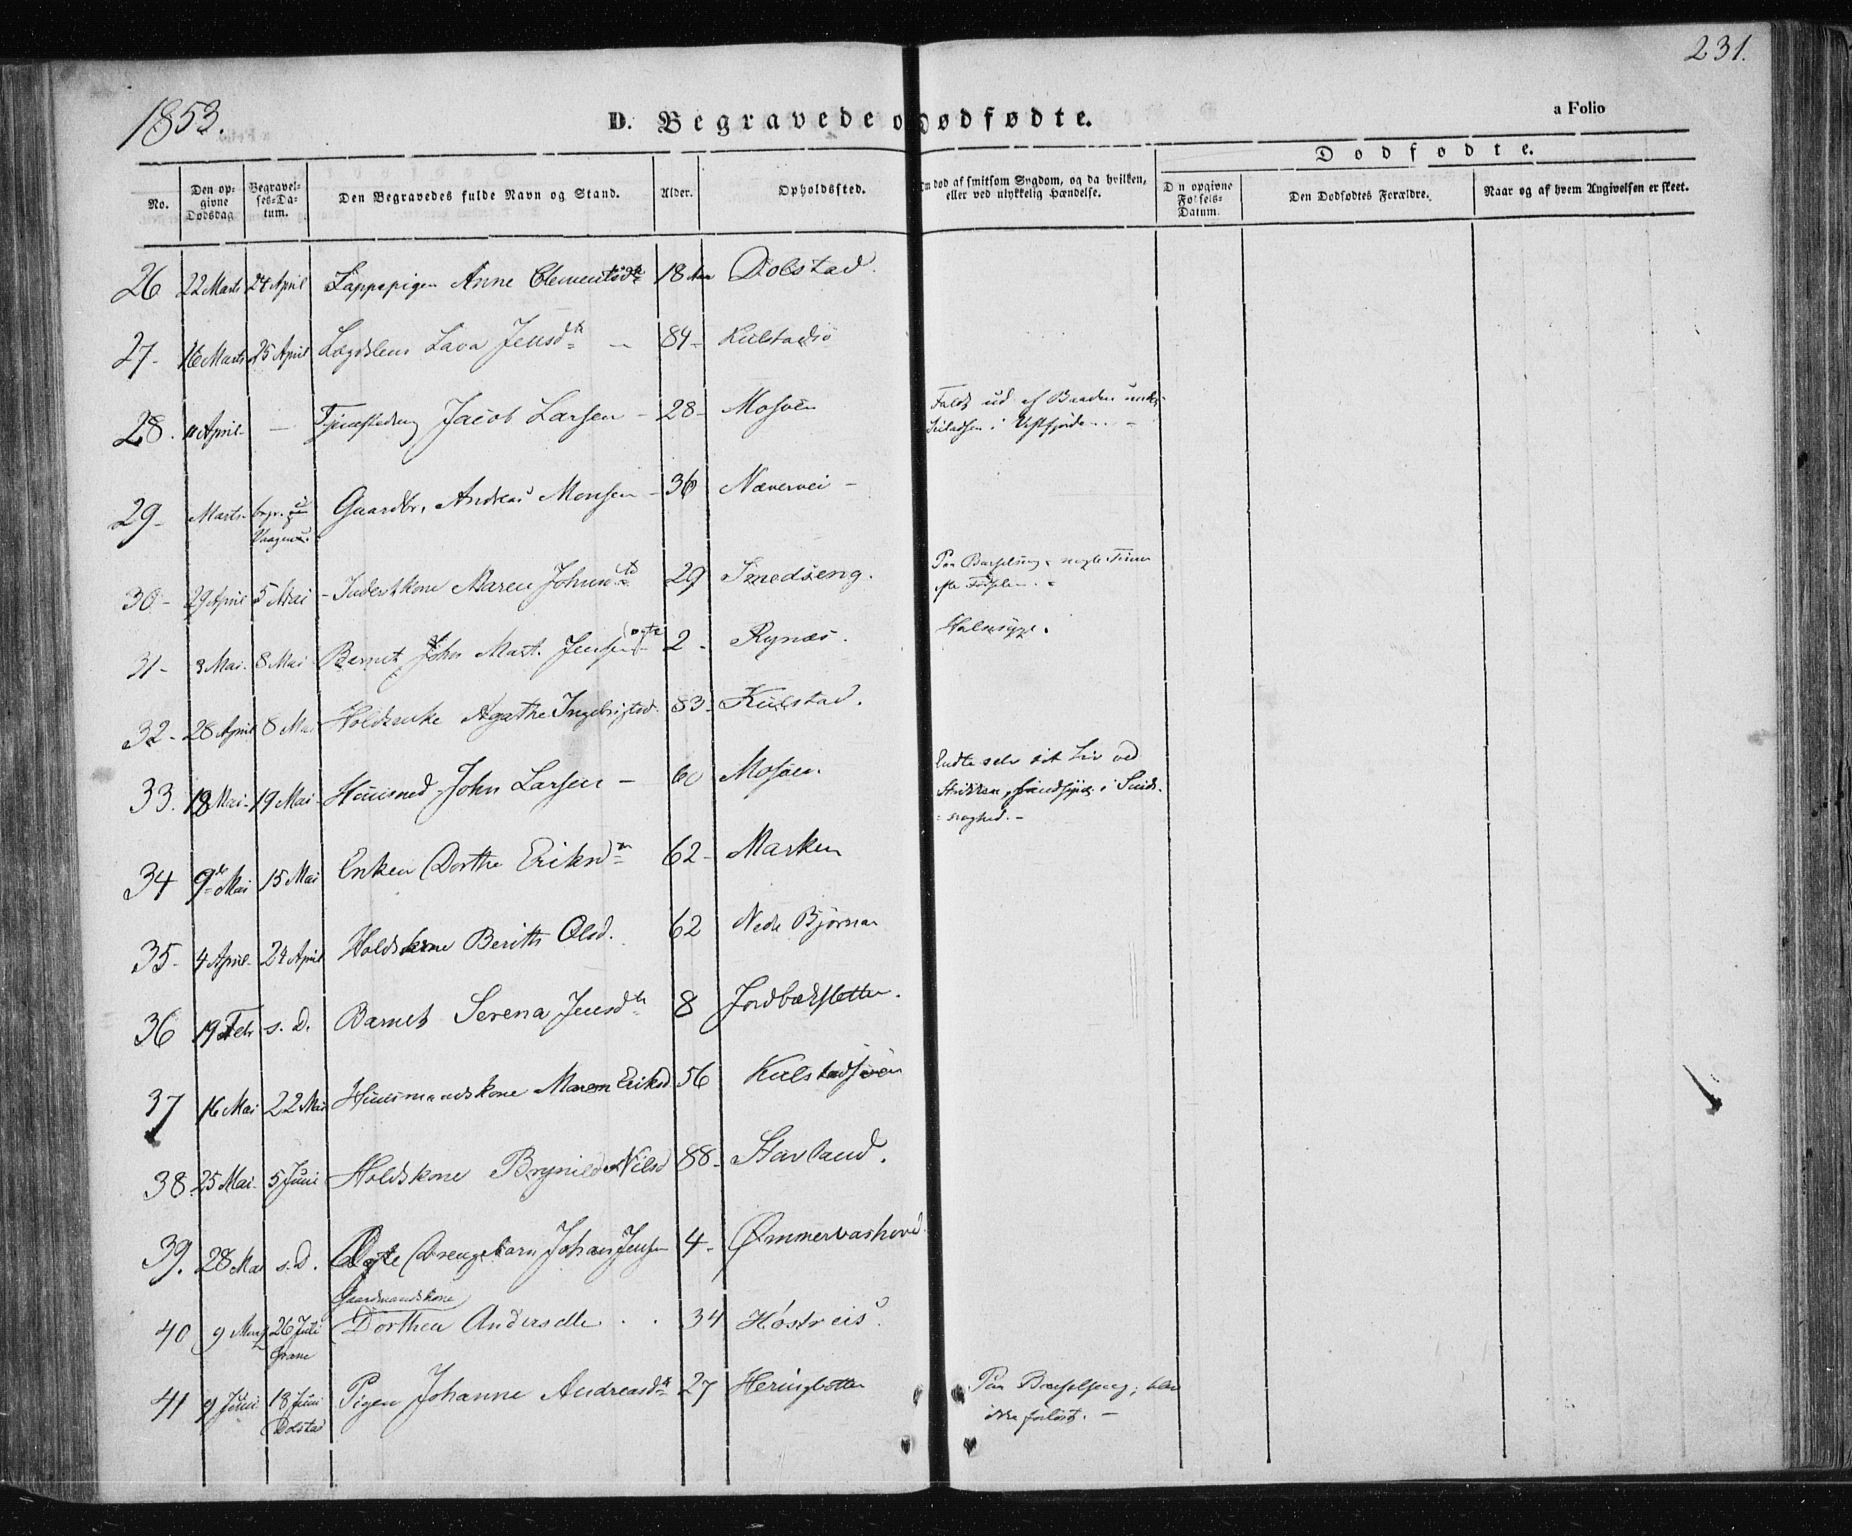 231.
1853.
D. Begravede o Dødfødte.
a Folio
Dødfødte.
No.
Den opgivne Dødsdag
Begravelses-Datum.
Den Begravedes fulde Navn og Stand.
Alder.
Opholdssted.
Om død af smitsom Sygdom, og da hvilken, eller ved ulykkelig Hændelse.
Den opgivne Fødsels-Datum.
Den Dødfødtes Forældre.
Naar og af hvem Angivelsen er skeet.
26 22 Marts 24 April Lappepigen Anne Clementsdtr 18 Aar Dolstad.
27- 16 Marts 25 April Lægdslem Lava Jensdtr - 84- Kulstadsø
28. 11 April - Tjenestedreng Jacob Larsen - 28- Mosøen Faldt ud af Baaden under
Seiladsen i Vestfjorden. -
29- Marts- begr. i Gaardbr. Andreas Monsen - 36 Nævervei -
Vaagen.
30- 29 April 5 Mai - Inderstkone Maren Johnsd 29 Smedseng. Paa Barselseng, nogle Timer
efter Fødselen. -
31- 3 Mai. 8 Mai Barnet John Mart. Jensen 2- Rynæs. Halssyge.
32- 28 April 8 Mai Holdsenke Agathe Ingebrigtsd. 83- Kulstad.
33. 18 Mai- 19 Mai- Huusmd. John Larsen - 60 Mosøen. Endte selv sit Liv ved
Strikken, sindsyg i Sinds-
svaghed. -
34 9de Mai 15 Mai Enken Dorthe Eriksdtr 62- Marken
35- 4 April- 24 April Holdskone Berith Olsd. 62 Nedre Bjørnaa
36 19 Febr s. D. Barnet Serena Jensdtr 8 Jordbæksletten.
37 16 Mai 22 Mai Huusmandskone Maren Eriksd 56 Kulstadsjøen
38. 25 Mai- 5 Juni Holdskone Brynild Nilsd 88- Stavland.
39. 28 Mai s. D. Ægte Drengebarn Johan Jensen 4- Ømmervashoved.
Gaardmandskone
40 9 26 Juli Dorthea Andersdtr . . 34 Høstreis.
Grane
41 9 Juni 18 Juni Pigen Johanne Andreasdtr 27 Heringbotten Paa Barselseng; blev
Dolstad ikke forløst. -